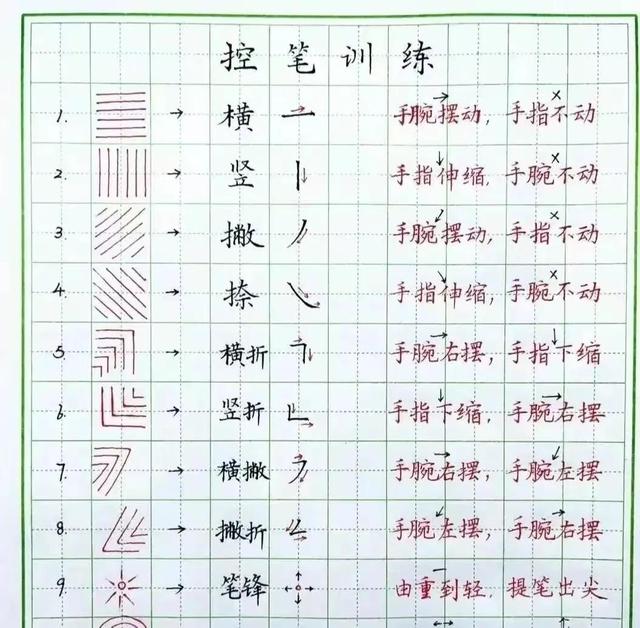 控笔训练
1. → 横 手腕摆动，手指不动
2. → 竖 手指伸缩，手腕不动
3. → 撇 手腕摆动，手指不动
4. → 捺 手指伸缩，手腕不动
5. → 横折 手腕右摆，手指下缩
6. → 竖折 手指下缩，手腕右摆
7. → 横撇 手腕右摆，手腕左摆
8. → 撇折 手腕左摆，手腕右摆
9. → 笔锋 由重到轻，提笔出尖